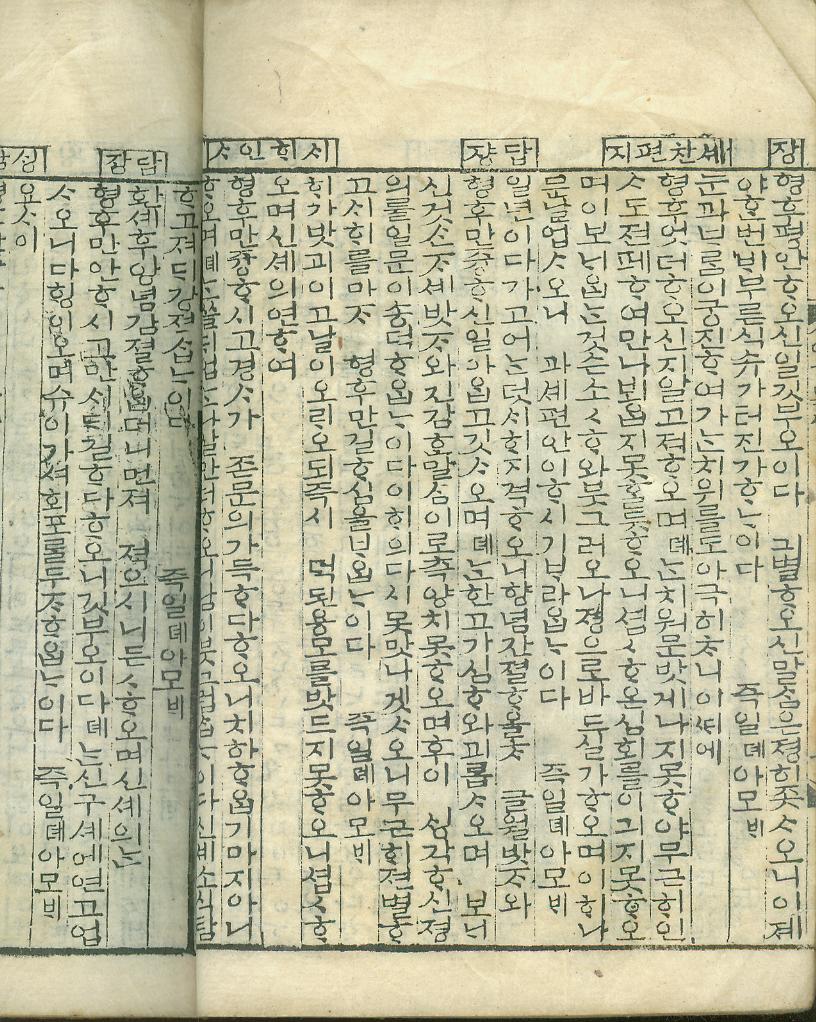 장
형후평안ᄒᆞ오신일깃부오이다 긔별ᄒᆞ오신말ᄉᆞᆷ은졍히죳ᄉᆞ오니이졔
야ᄒᆞᆫ번비부른식슈가터진가ᄒᆞᄂᆞ이다 즉일뎨아모ᄇᆡ
셰찬편지
눈과ᄇᆞ룸이궁진ᄒᆞ여가ᄂᆞᆫ치위를도아극히ᄎᆞ니이ᄯᅢ에
형후엇더ᄒᆞ오신지알고져ᄒᆞ오며뎨ᄂᆞᆫ치워문밧게나지못ᄒᆞ야무근ᄒᆡ인
ᄉᆞ도젼폐ᄒᆞ여만나보ᄋᆞᆸ지못ᄒᆞᆯ듯ᄒᆞ오니셥ᄉᆞᄒᆞ온심회를이긔지못ᄒᆞ오
며이보ᄂᆡᄋᆞᆸᄂᆞᆫ것손소ᄉᆞᄒᆞ와붓그러오나졍으로바듀실가ᄒᆞ오며이ᄒᆡ나
믄날업ᄉᆞ오니 과셰편안이ᄒᆞ시기ᄇᆞ라ᄋᆞᆸᄂᆞ이다 즉일뎨아모ᄇᆡ
답쟝
일년이다가고어ᄂᆞ덧시ᄒᆡ지격ᄒᆞ오니향념간졀ᄒᆞ올ᄎᆞ 글월밧ᄌᆞ와
형후만즁ᄒᆞ신일아ᄋᆞᆸ고깃ᄉᆞ오며뎨ᄂᆞᆫ한고가심ᄒᆞ와괴롭ᄉᆞ오며 보ᄂᆡ
신것ᄉᆞᆫᄌᆞ셰밧ᄌᆞ와진감ᄒᆞᆯ말ᄉᆞᆷ이로측양치못ᄒᆞ오며후이 ᄉᆡᆼ각ᄒᆞ신졍
의를일문이숑덕ᄒᆞᄋᆞᆸᄂᆞ이다이ᄒᆡ의다시못맛나겟ᄉᆞ오니무근ᄒᆡ젼별ᄒᆞ
고시ᄒᆡ를마ᄌᆞ 형후만길ᄒᆞ심을ᄇᆞ라ᄋᆞᆸᄂᆞ이다 즉일뎨아모ᄇᆡ
시ᄒᆡ인ᄉᆞ
ᄒᆡ가밧괴이고날이오ᄅᆡ오되즉시 덕된용모를밧드지못ᄒᆞ오니셥ᄉᆞᄒᆞ
오며신셰의연ᄒᆞ여
형후만즁ᄒᆞ시고경ᄉᆞ가 존문의가득ᄒᆞ다ᄒᆞ오니치하ᄒᆞᄋᆞᆸ기마지아니
ᄒᆞ고져 간졀ᄒᆞᄂᆞ이다 즉일뎨아모ᄇᆡ
답장
환셰후앙념간졀ᄒᆞᄋᆞᆸ더니먼져 젹으시니든ᄉᆞᄒᆞ오며신셰의ᄂᆞᆫ
형후만안ᄒᆞ시고만ᄉᆞ길ᄒᆞ다ᄒᆞ오니깃부오이다뎨ᄂᆞᆫ신구셰에연고업
ᄉᆞ오니다ᄒᆡᆼ이오며슈이가셔회포를두ᄌᆞᄒᆞᄋᆞᆸᄂᆞ이다 즉일뎨아모ᄇᆡ
요ᄉᆞ이